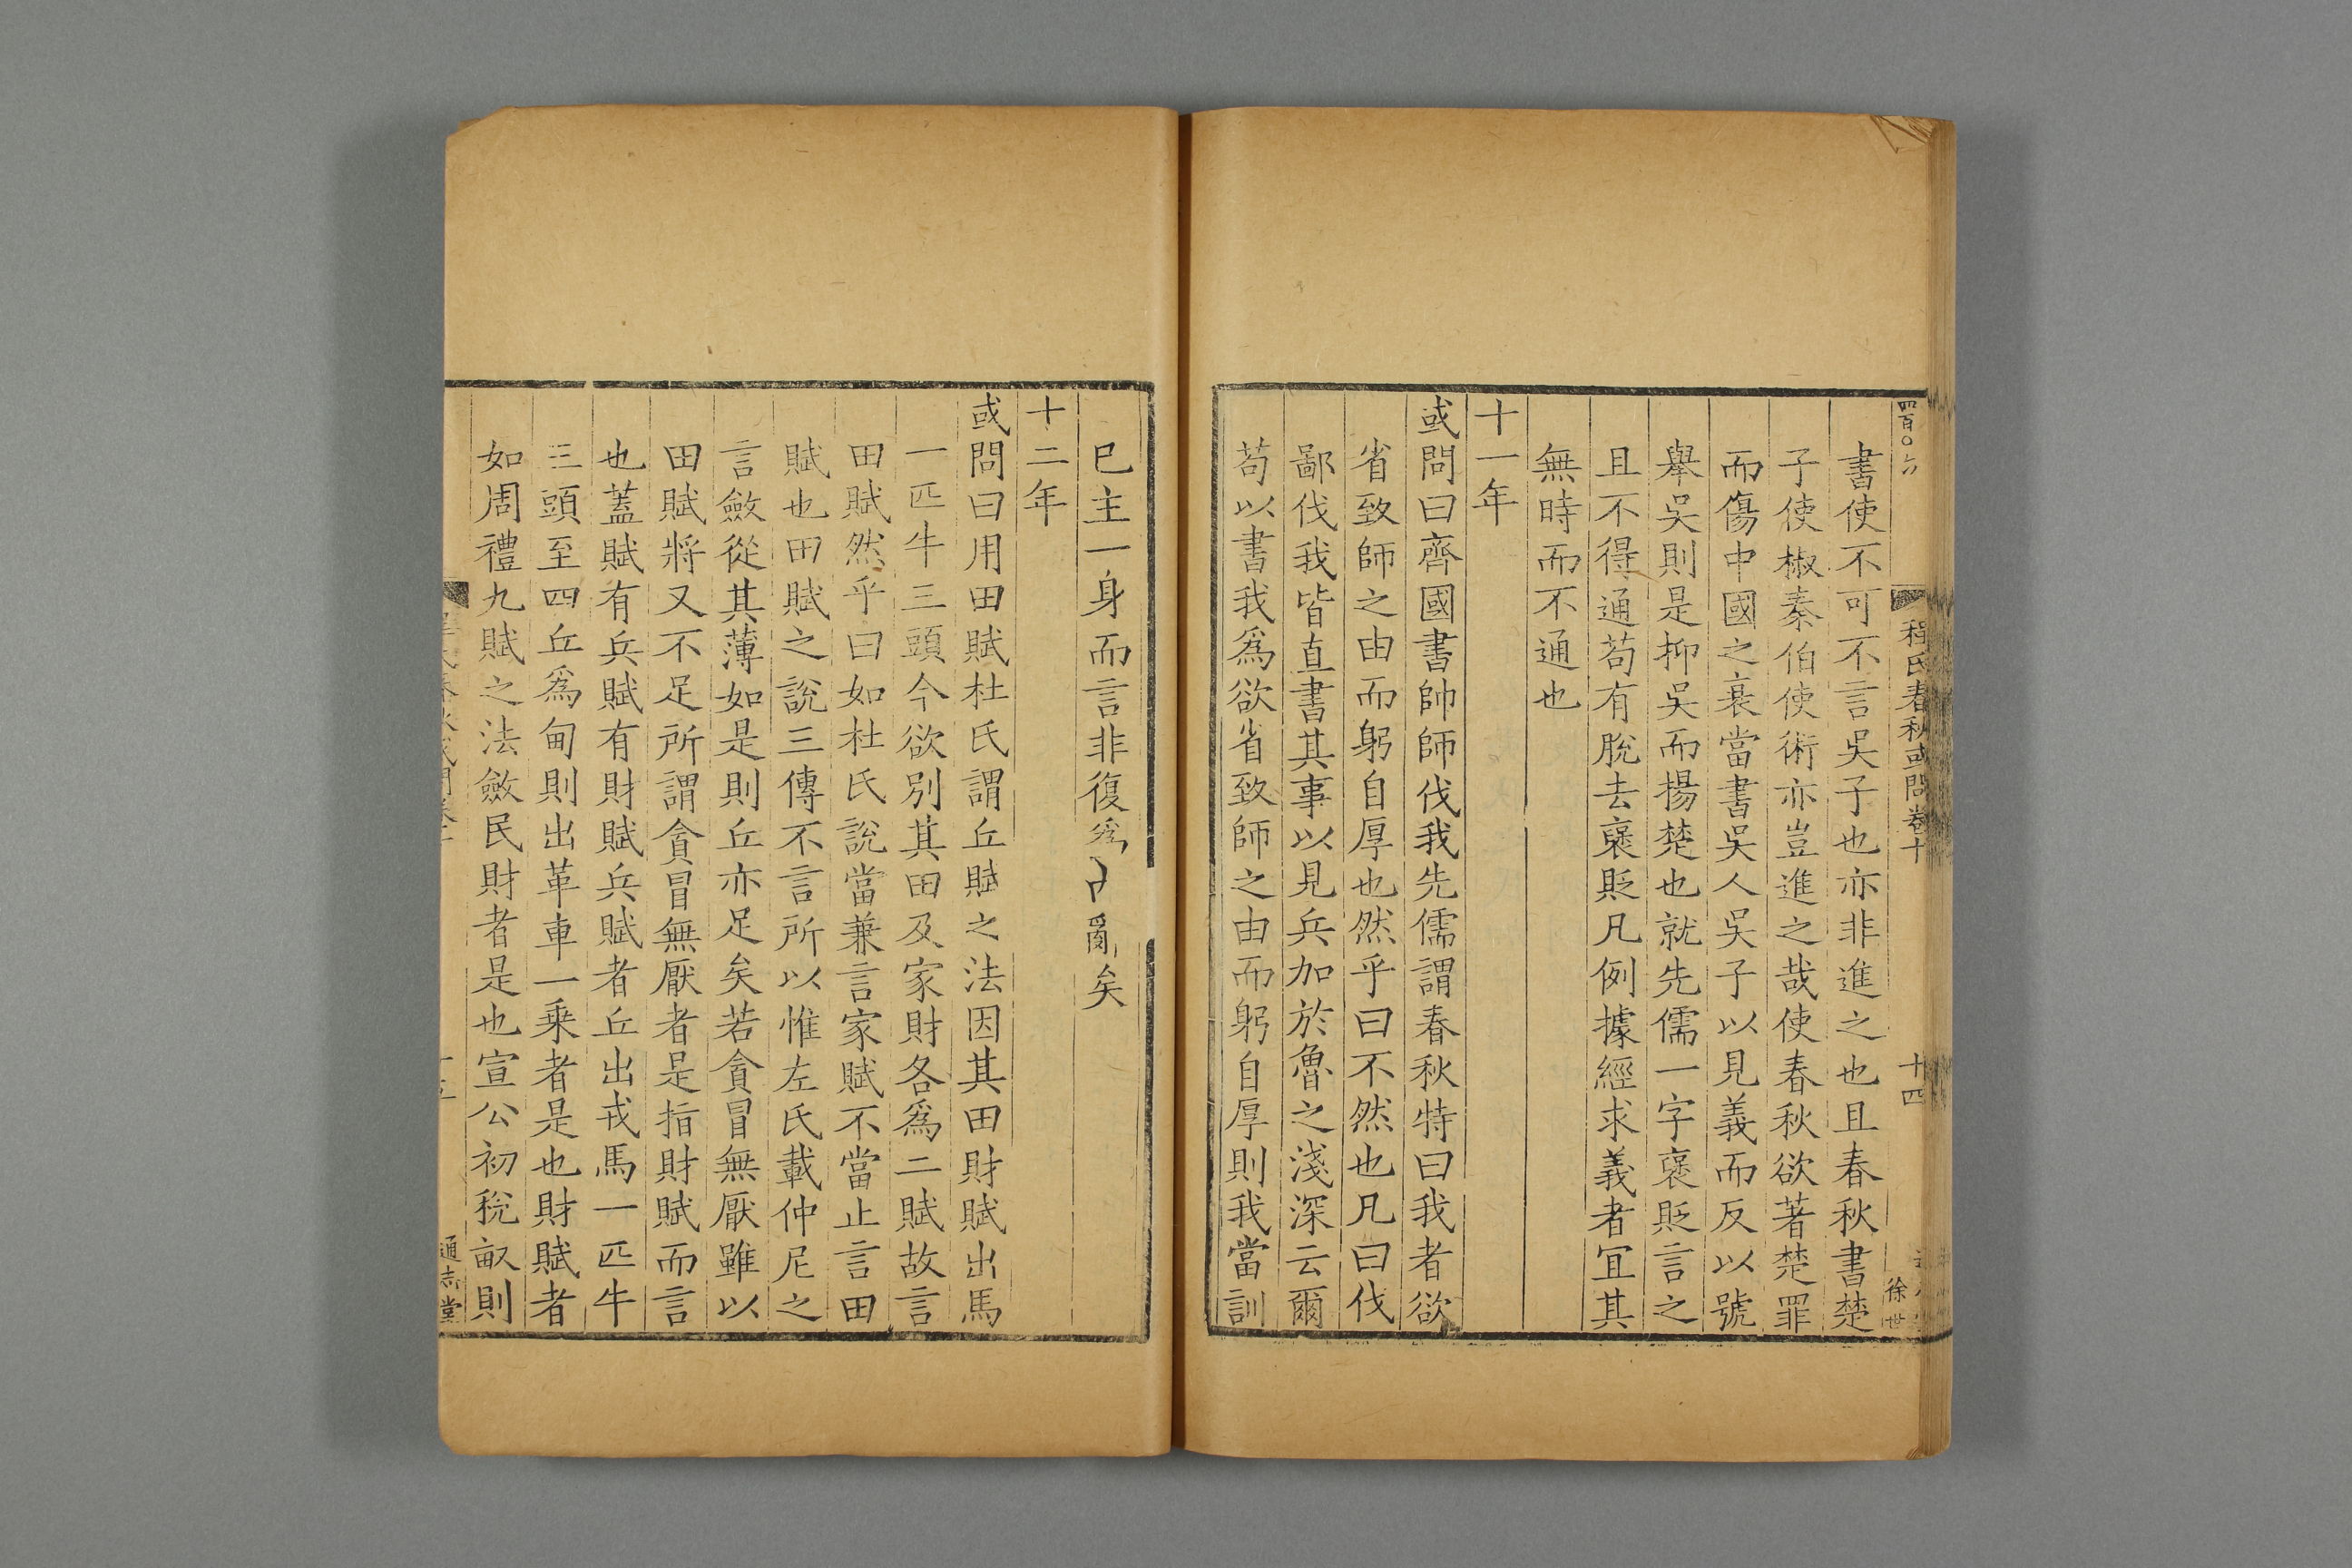 四百〇六
程氏春秋或問卷十
十四
徐世
書使不可不言吳子也亦非進之也且春秋書楚
子使椒秦伯使術亦豈進之哉使春秋欲著楚罪
而傷中國之衰當書吳人吳子以見義而反以號
舉吳則是抑吳而揚楚也就先儒一字褒貶言之
且不得通苟有脫去褒貶凡例據經求義者宜其
無時而不通也
十一年
或問曰齊國書帥師伐我先儒謂春秋特曰我者欲
省致師之由而躬自厚也然乎曰不然也凡曰伐
鄙伐我皆直書其事以見兵加於魯之淺深云爾
苟以書我爲欲省致師之由而躬自厚則我當訓
已主一身而言非復爲亂矣
十二年
或問曰用田賦杜氏謂丘賦之法因其田財賦出馬
一匹牛三頭今欲別其田及家財各爲二賦故言
田賦然乎曰如杜氏說當兼言家賦不當止言田
賦也田賦之說三傳不言所以惟左氏載仲尼之
言斂從其薄如是則丘亦足矣若貪冒無厭雖以
田賦將又不足所謂貪冒無厭者是指財賦而言
也蓋賦有兵賦有財賦兵賦者丘出戎馬一匹牛
三頭至四丘爲甸則出革車一乗者是也財賦者
如周禮九賦之法斂民財者是也宣公初稅畝則
通志堂